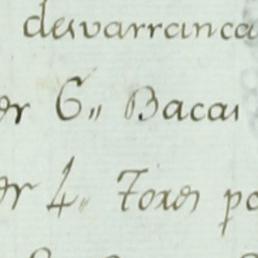 desvarranca
er 6,, Bacas
er 4,, Tores po